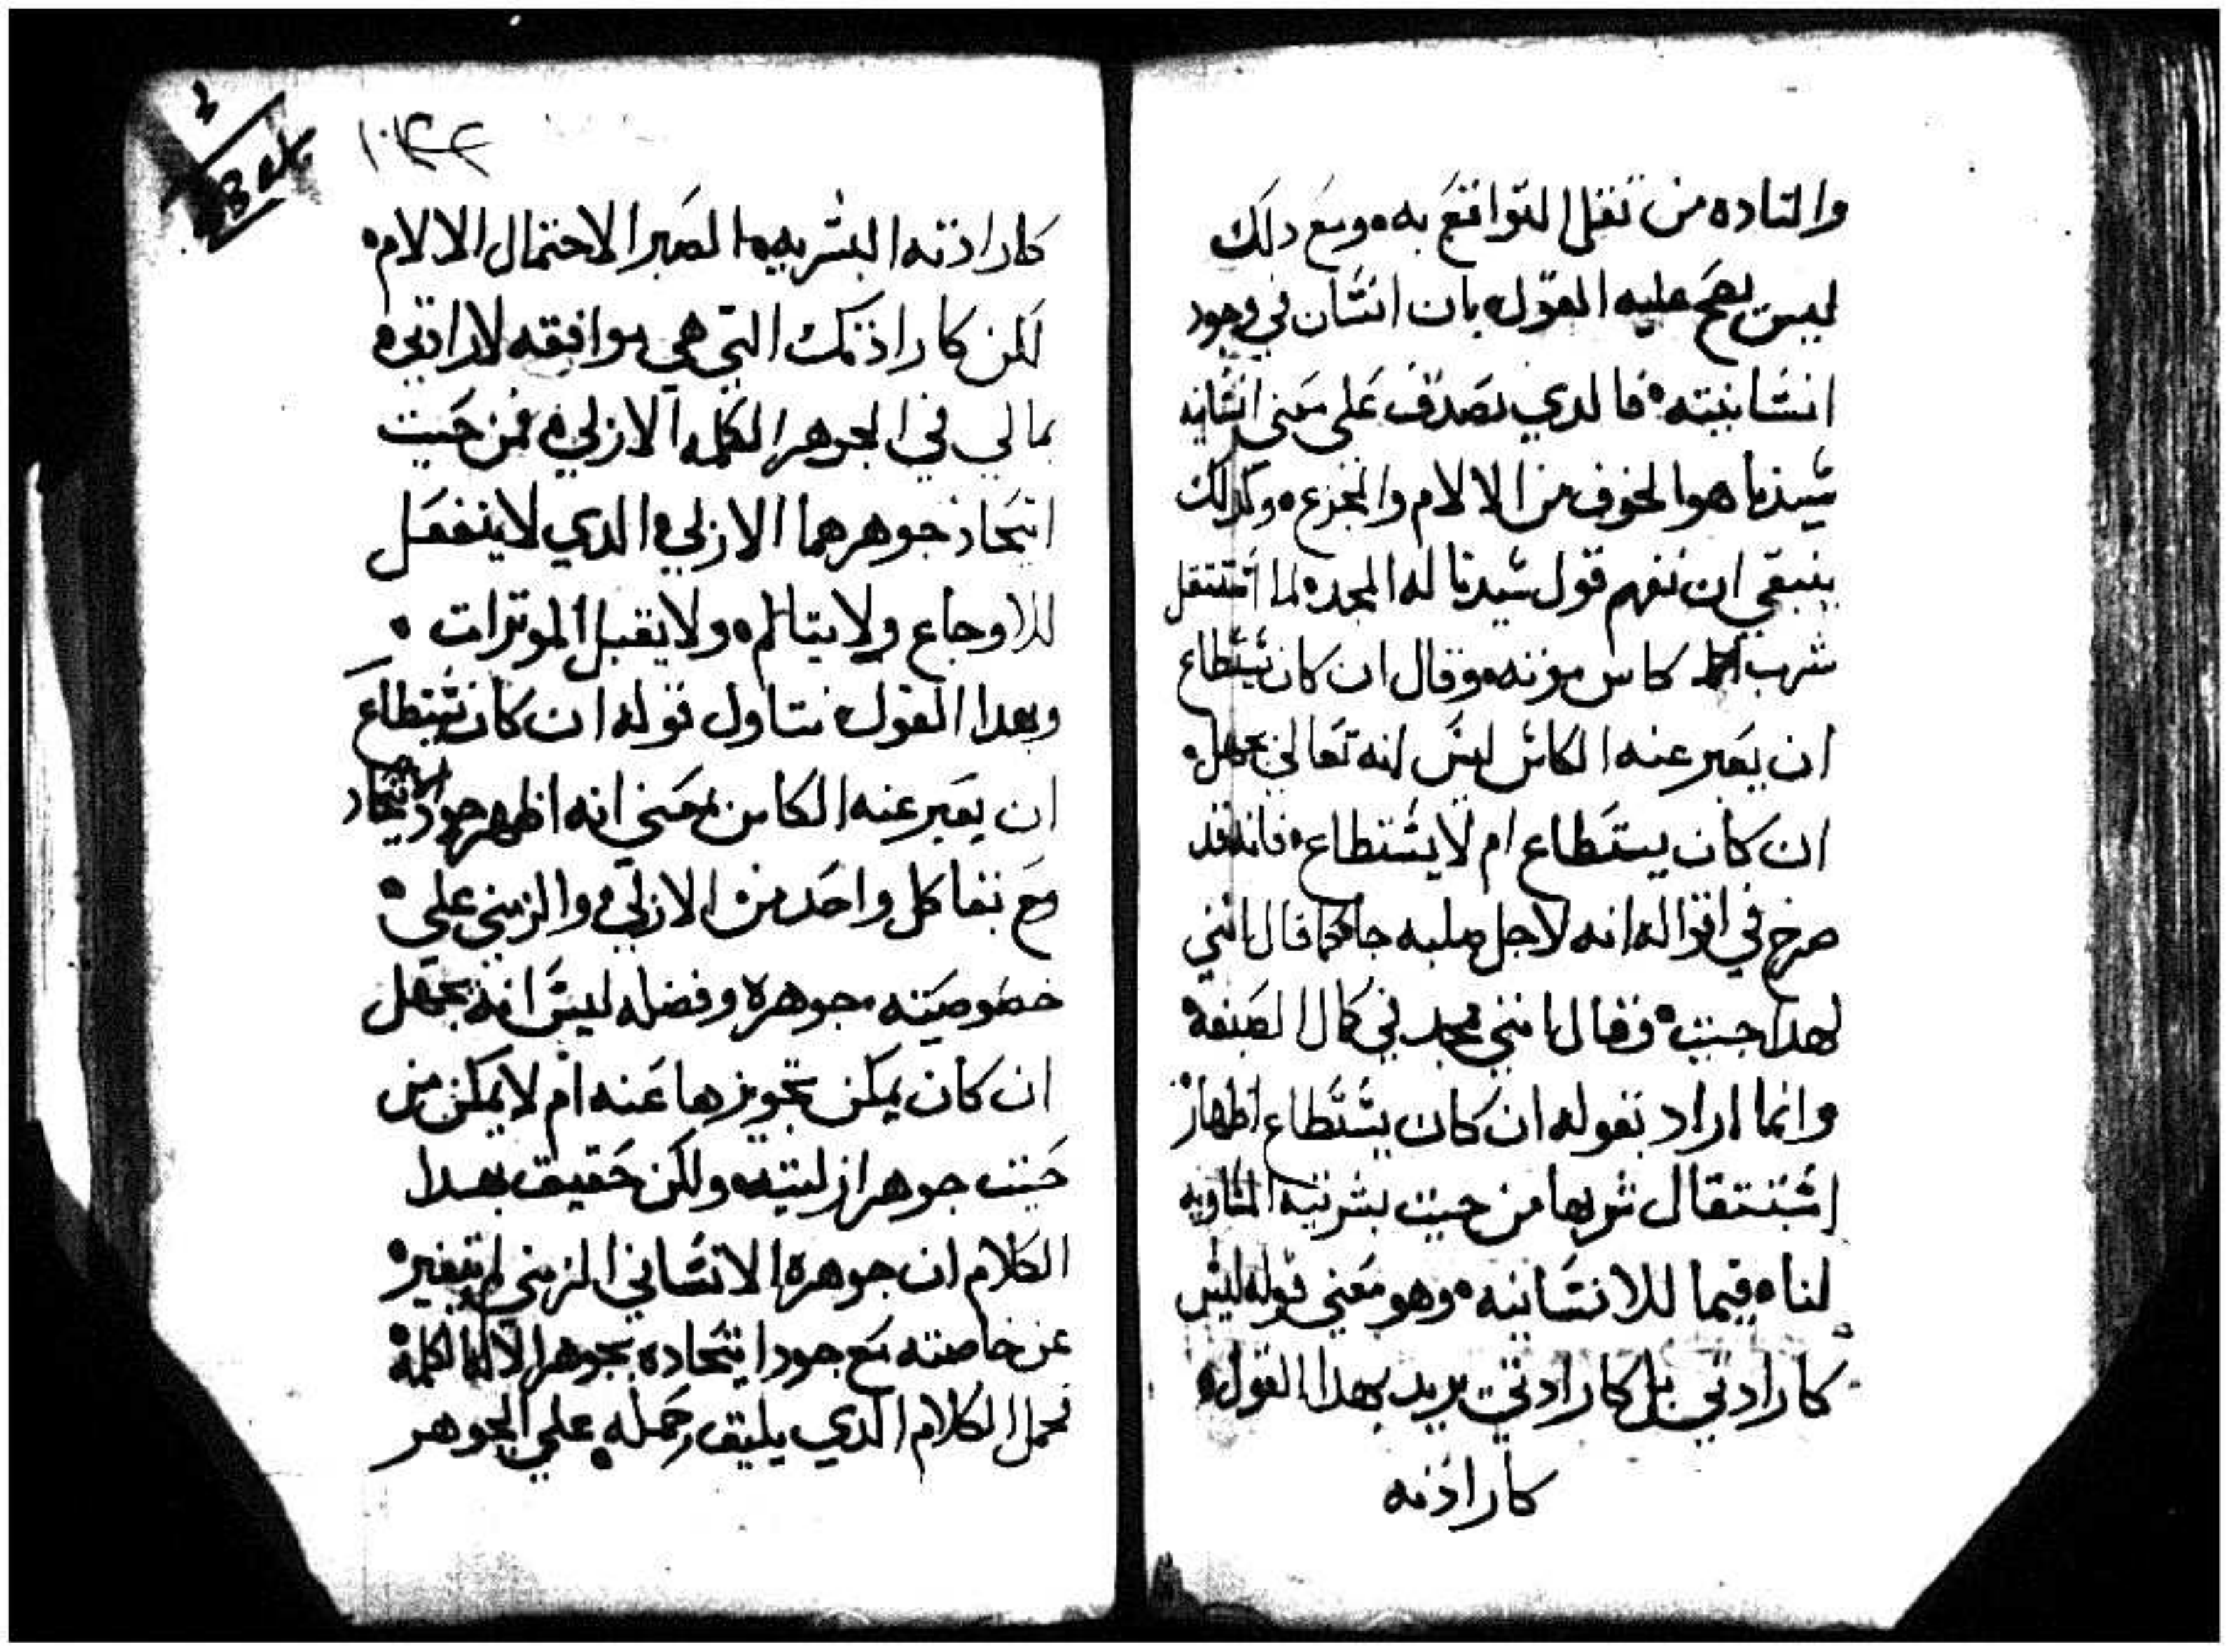 والتاده من نقل التواضع به ومع دلك
ليس يصح عليه القول بان انسان في وجود
انسانيته فالدي يصدق على معنى انسانيه
سيدنا هو الخوف من الالام والجزع وكدلك
ينبغي ان نفهم قول سيدنا له المجد لما استتقل
شرب كاس موته وقال ان كان يستطاع
ان يعبر عنه الكاس ليس انه تعالى يجهل
ان كان يستطاع ام لا يستطاع فانه قد
صرح في اقواله انه لاجل صلبه جا كما قال انني
لهدا جيت وقال انني مجد ني كال الصنعه
وانما اراد بقوله ان كان يستطاع اظهار
استتقال شربها من حيت بشريته المساويه
لنا فيما للانسانيه وهو معنى قوله ليس
كارادتي بل كارادتي يريد بهدا القول
كارادته
3
Bel
١٠٤٤
كارادته البشريه الصبر الاحتمال الالام
لكن كارادتك التي هي موافقه لارادتي
بما لي في الجوهر الكلمه الازلي فمن حيت
اتحاد جوهرهما الازلي الدي لا ينفعل
للاوجاع ولا يتالم ولا يقبل الموترات
وبهدا القول نتاول قوله ان كان يستطاع
ان يعبر عنه الكاس بمعني انه اظهر جود الاتحاد
مع بقا كل واحد من الازلي والزمني علي
خصوصيته جوهره وفضله ليس انه يجهل
ان كان يمكن تجويزها عنه ام لا يمكن من
حيت جوهر ازليته ولكن حقيق بهدا
الكلام ان جوهره الانساني الزمني لم يتغير
عن خاصته مع جود اتحاده بجوهر الاله الكلمة
نحمل الكلام الدي يليق حمله علي الجوهر